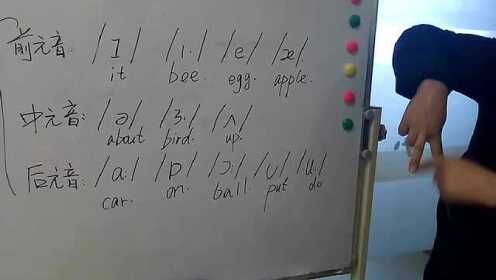 前元音: /ɪ/ /i:/ /e/ /æ/
it bee. egg. apple.
中元音: /ə/ /ɜ:/ /ʌ/
about bird. up.
后元音: /ɑ:/ /ɒ/ /ɔ:/ /ʊ/ /u:/
car. on. ball. put do